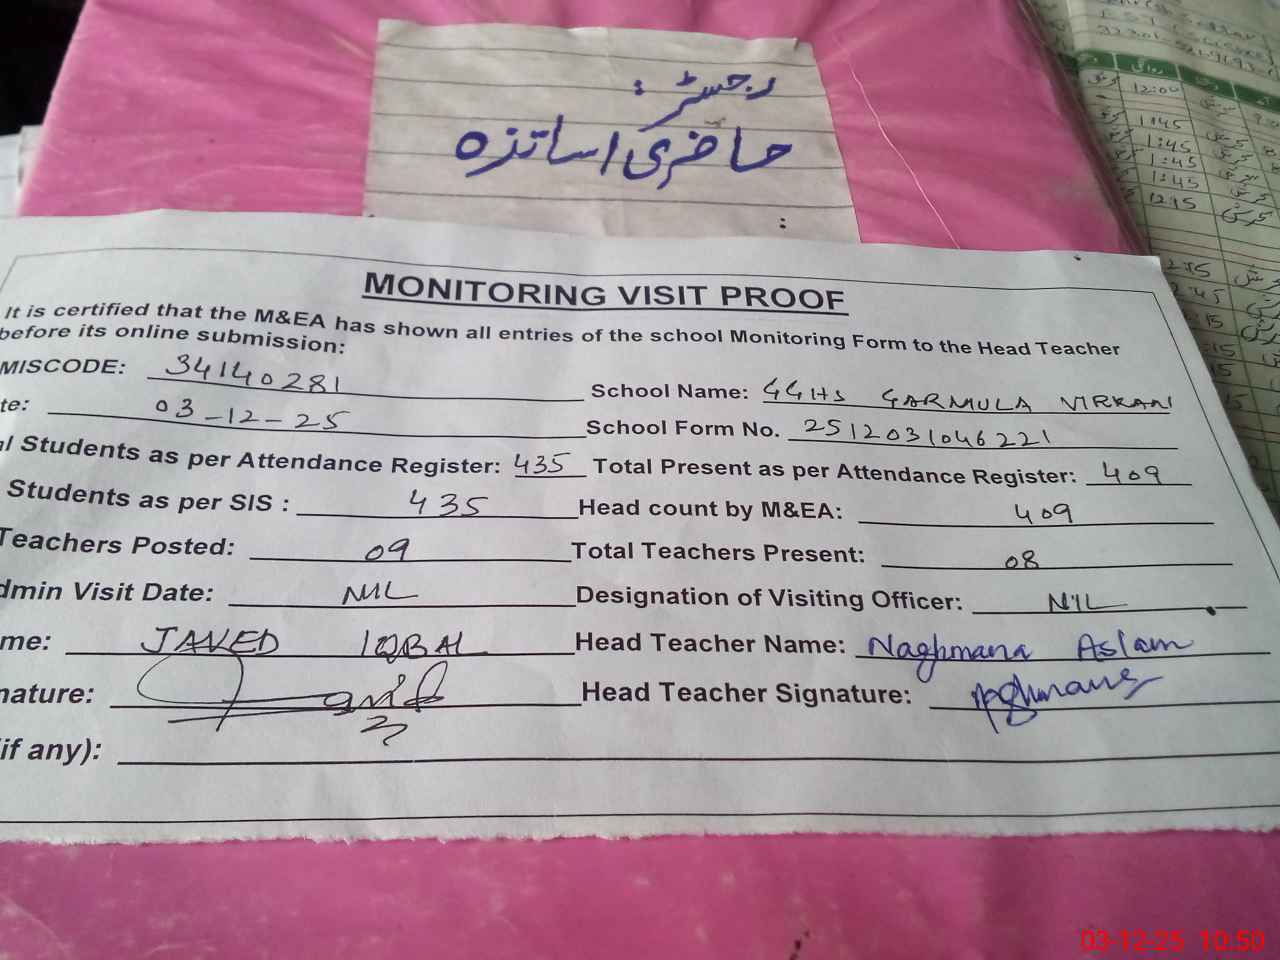 رجسٹر :
حاضری اساتذہ
:
MONITORING VISIT PROOF
It is certified that the M&EA has shown all entries of the school Monitoring Form to the Head Teacher
before its online submission:
MISCODE: 34140281 School Name: GGHS GARMULA VIRKAN
te: 03-12-25 School Form No. 2512031046221
l Students as per Attendance Register: 435 Total Present as per Attendance Register: 409
Students as per SIS : 435 Head count by M&EA: 409
Teachers Posted: 09 Total Teachers Present: 08
dmin Visit Date: NIL Designation of Visiting Officer: NIL
me: JAVED IQBAL Head Teacher Name: Naghmana Aslam
nature: Head Teacher Signature: Naghmana
if any):
12:00
1:45
1:45
1:45
1:45
12:15
03-12-25 10:50